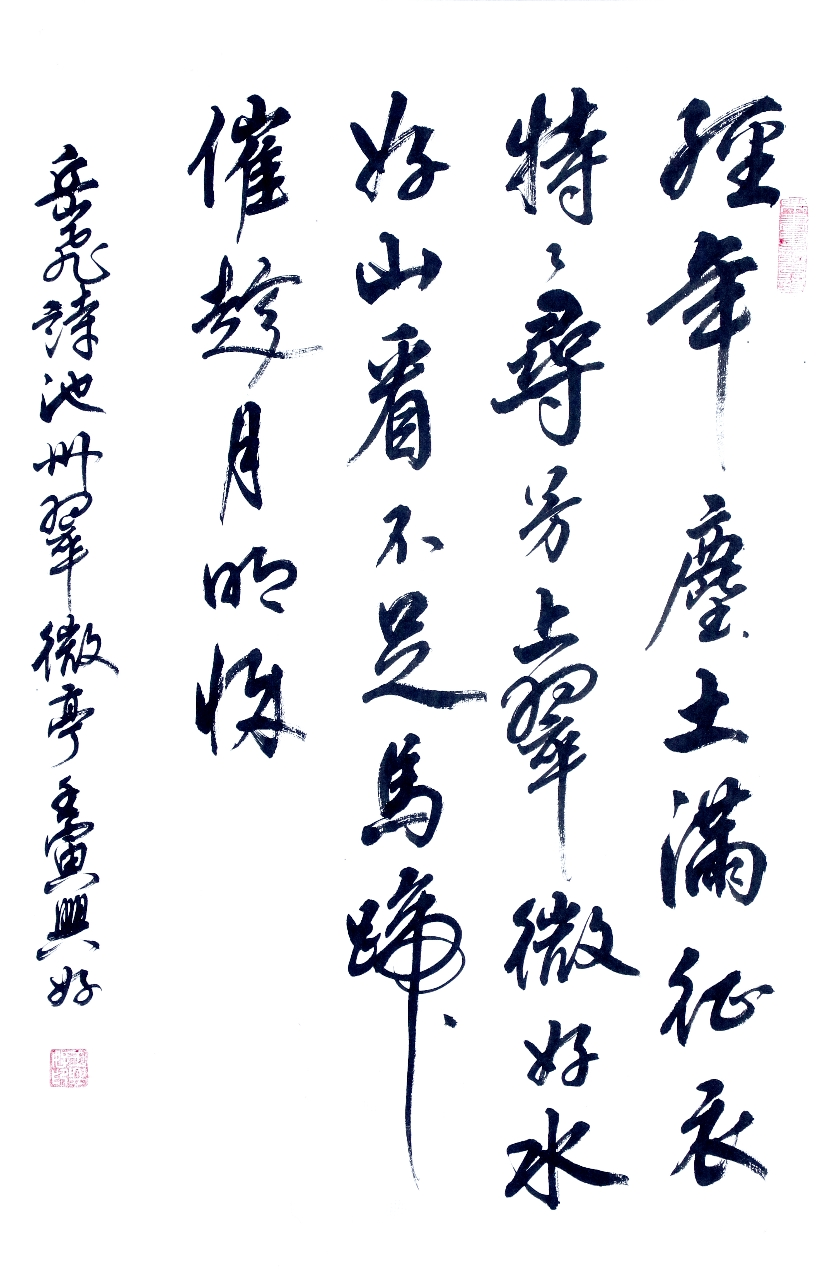 經年塵土滿征衣
特々尋芳上翠微好水
好山看不足馬蹄
催趁月明歸
岳飛詩池州翠微亭壬寅興好